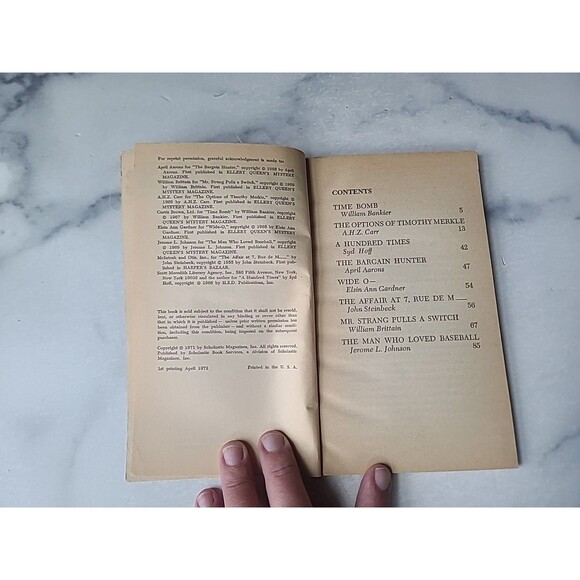 For reprint permission, grateful acknowledgement is made to:
April Aarons for "The Bargain Hunter," copyright © 1968 by April
Aarons. First published in ELLERY QUEEN'S MYSTERY
MAGAZINE.
William Brittain for "Mr. Strang Pulls a Switch," copyright © 1969
by William Brittain. First published in ELLERY QUEEN'S
MYSTERY MAGAZINE.
A.H.Z. Carr for "The Options of Timothy Merkle," copyright ©
1969 by A.H.Z. Carr. First published in ELLERY QUEEN'S
MYSTERY MAGAZINE.
Curtis Brown, Ltd. for "Time Bomb" by William Bankier, copyright
© 1967 by William Bankier. First published in ELLERY
QUEEN'S MYSTERY MAGAZINE.
Elsin Ann Gardner for "Wide-O," copyright © 1968 by Elsin Ann
Gardner. First published in ELLERY QUEEN'S MYSTERY
MAGAZINE.
Jerome L. Johnson for "The Man Who Loved Baseball," copyright
© 1969 by Jerome L. Johnson. First published in ELLERY
QUEEN'S MYSTERY MAGAZINE.
McIntosh and Otis, Inc., for "The Affair at 7, Rue de M___," by
John Steinbeck, copyright © 1955 by John Steinbeck. First pub-
lished in HARPER'S BAZAAR.
Scott Meredith Literary Agency, Inc., 580 Fifth Avenue, New York,
New York 10036 and the author for "A Hundred Times" by Syd
Hoff, copyright © 1966 by H.S.D. Publications, Inc.
This book is sold subject to the condition that it shall not be resold,
lent, or otherwise circulated in any binding or cover other than
that in which it is published — unless prior written permission has
been obtained from the publisher — and without a similar condition,
including this condition, being imposed on the subsequent
purchaser.
Copyright © 1971 by Scholastic Magazines, Inc. All rights reserved.
Published by Scholastic Book Services, a division of Scholastic
Magazines, Inc.
1st printing April 1972 Printed in the U. S. A.
CONTENTS
TIME BOMB
William Bankier 5
THE OPTIONS OF TIMOTHY MERKLE
A.H.Z. Carr 13
A HUNDRED TIMES
Syd Hoff 42
THE BARGAIN HUNTER
April Aarons 47
WIDE O—
Elsin Ann Gardner 54
THE AFFAIR AT 7, RUE DE M___
John Steinbeck 56
MR. STRANG PULLS A SWITCH
William Brittain 67
THE MAN WHO LOVED BASEBALL
Jerome L. Johnson 85